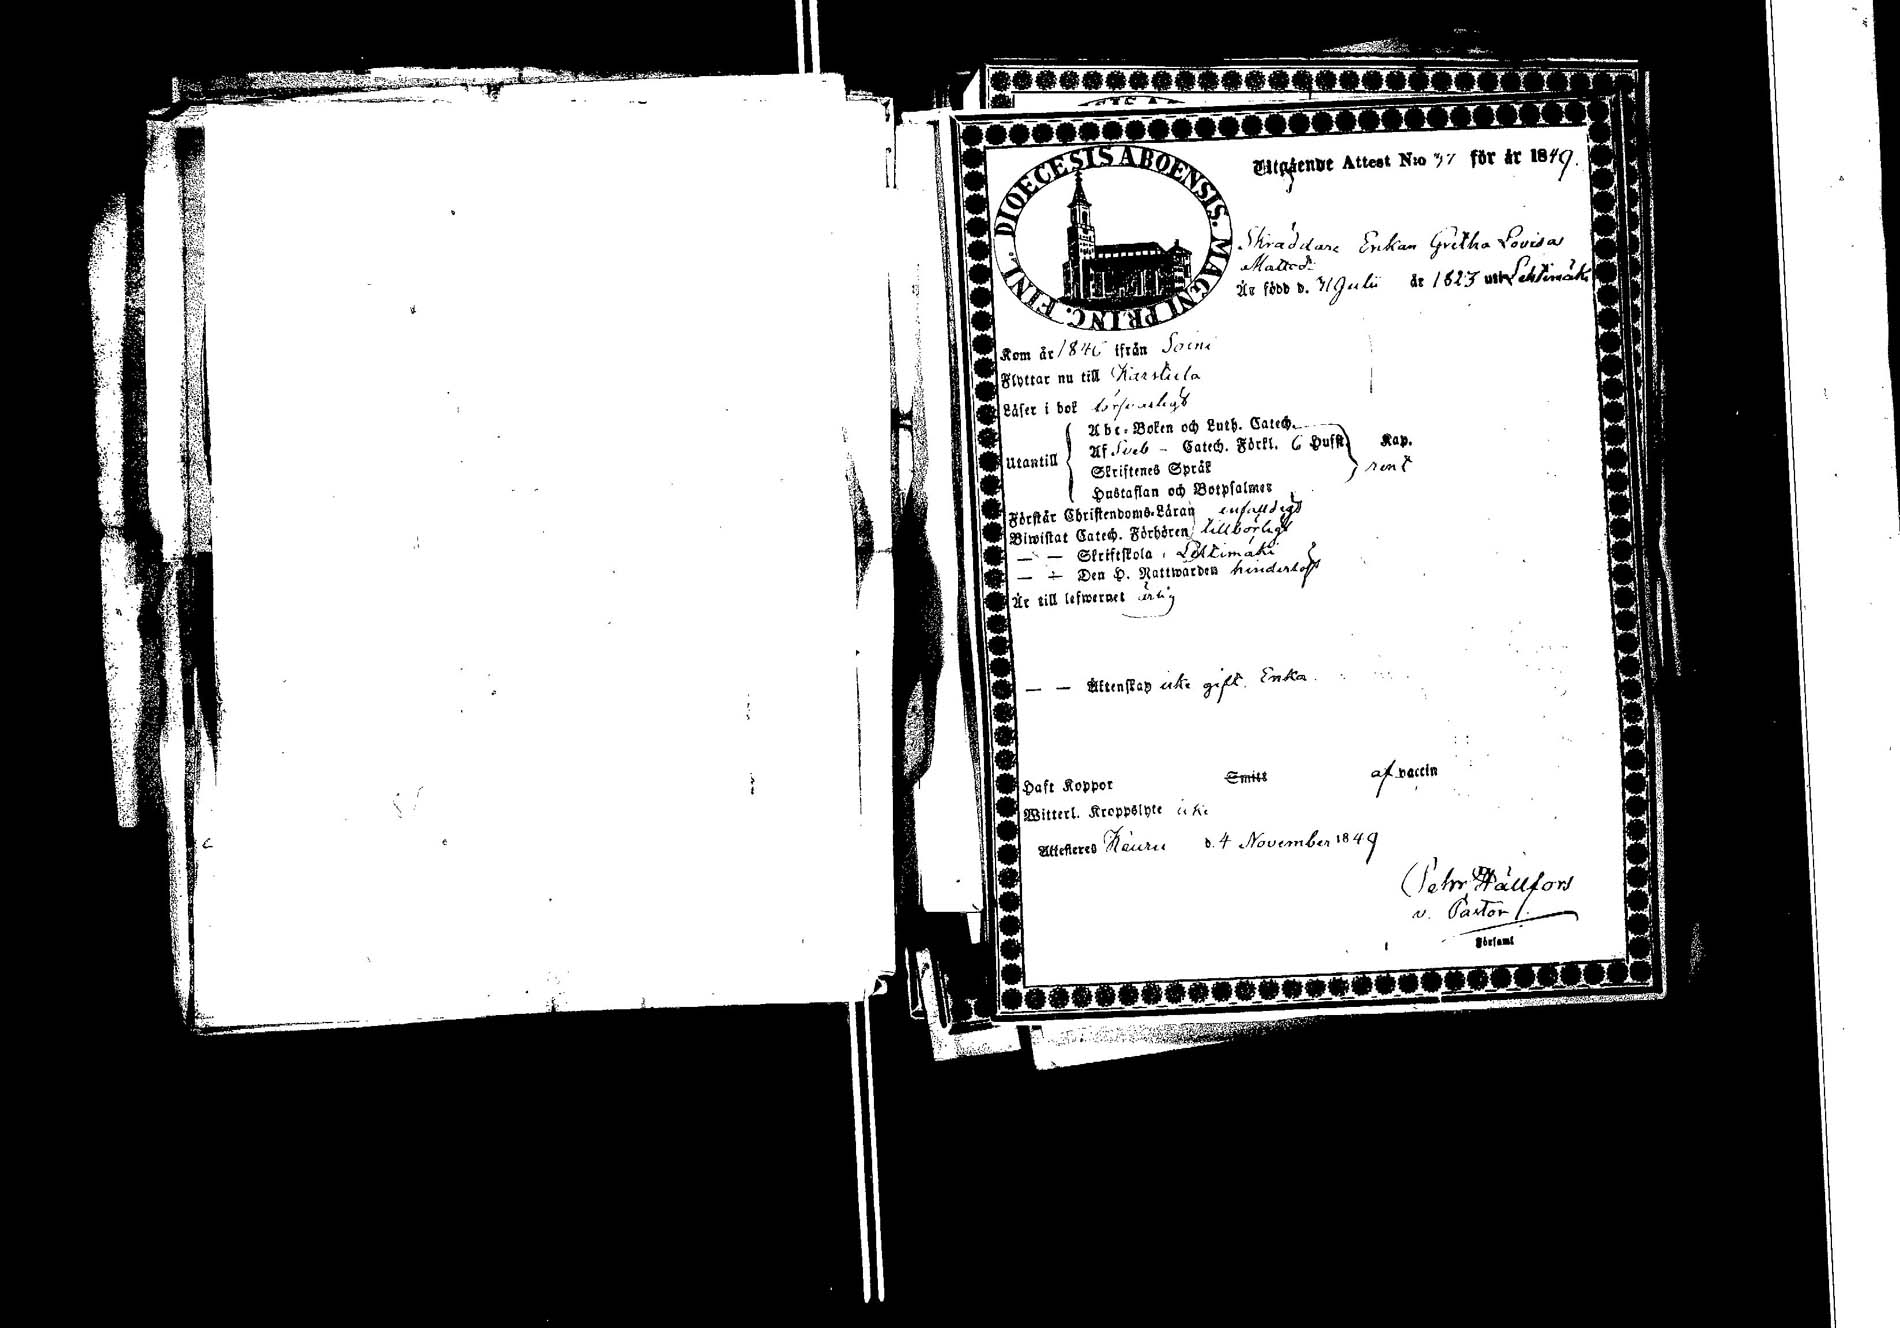 DIOECESIS ABOENSIS. MAGNI PRINC. FINL.
Utgående Attest N:o 37 för år 1849.
Skräddare Enkan Gretha Lovisa
Mattsd:
Är född d. 31 Julii år 1823 uti Lehtimäki
Kom år 1846 ifrån Soini
Flyttar nu till Karstula
Läser i bok försvarligt
Abc-Boken och Luth. Catech.
Utantill Af Sveb – Catech. Förkl. 6 Hufst. Kap.
Skriftenes Språk rent
Hustaflan och Botpsalmer
Förstår Christendoms-Läran enfaldigt
Biwistat Catech. Förhören tillbörligt
— — Skriftskola i Lehtimäki
— — Den H. Nattwarden hinderlöst
Är till lefwernet ärlig
— — Äktenskap icke gift. Enka.
Haft Koppor Smitt af vaccin
Witterl. Kroppslyte icke
Attesteres Keuru d. 4 November 1849
Pehr Hällfors
v. Pastor
Församl